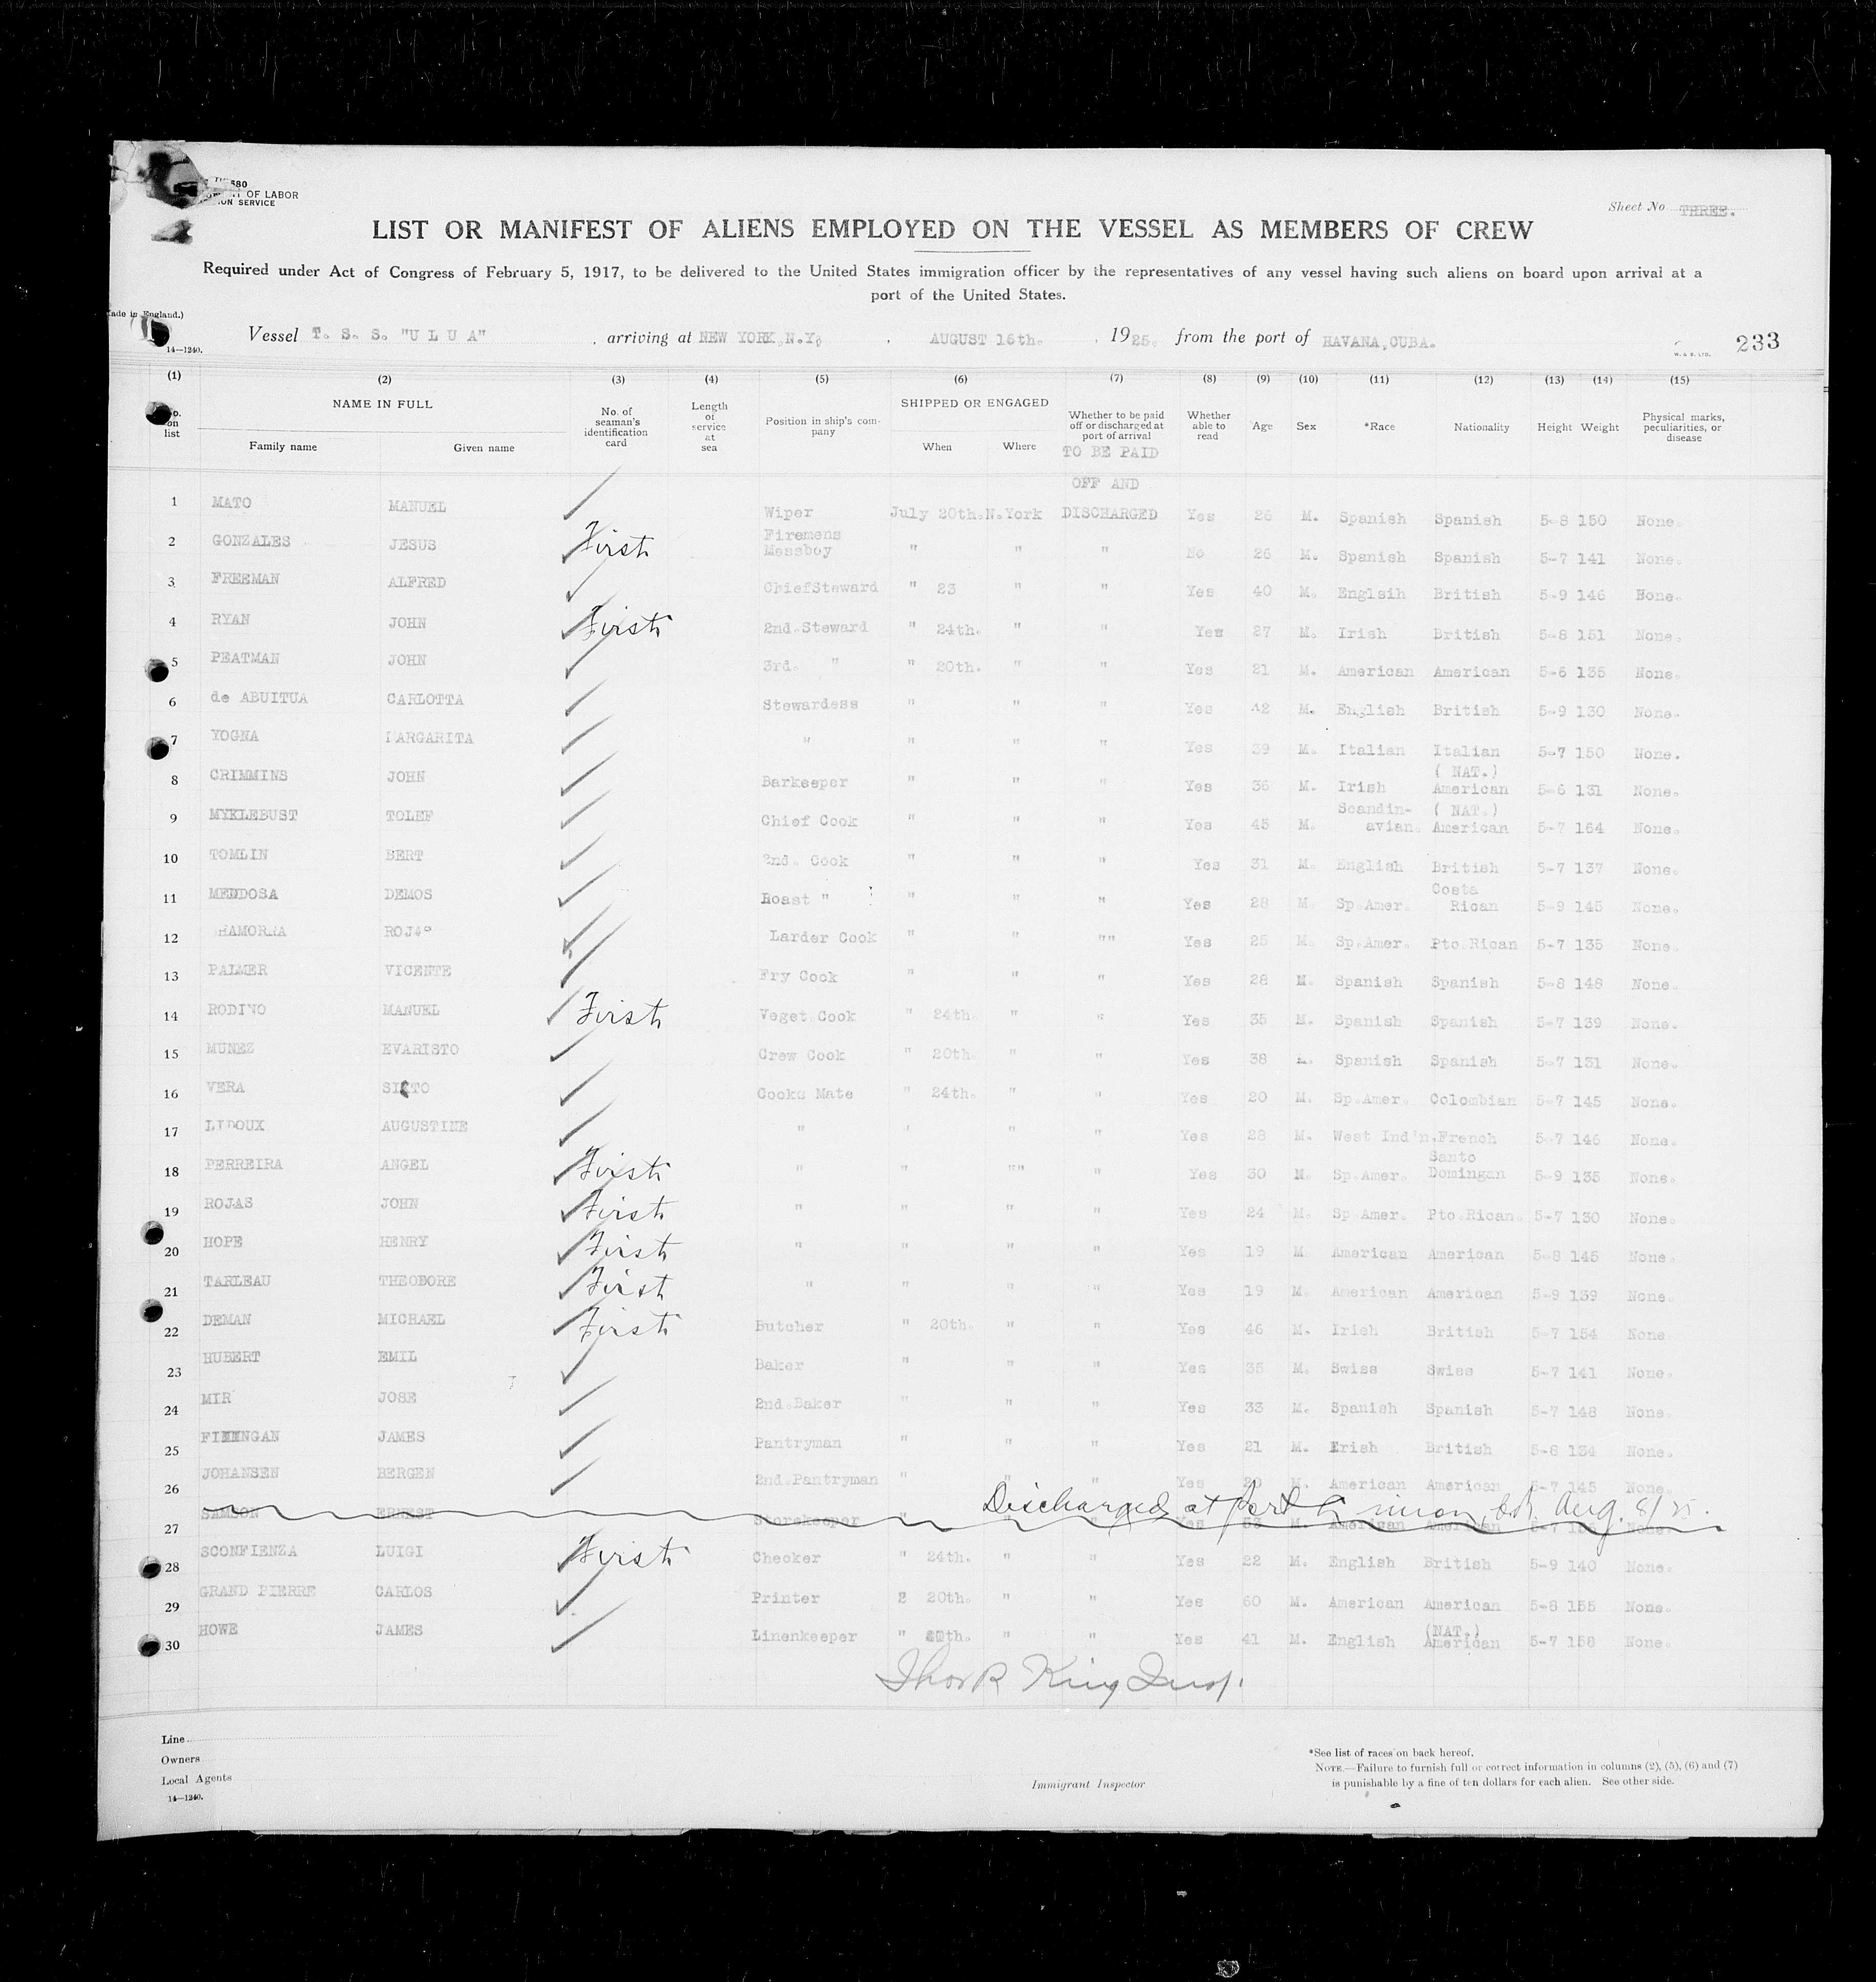 680
OF LABOR
ION SERVICE
Sheet No THREE.
LIST OR MANIFEST OF ALIENS EMPLOYED ON THE VESSEL AS MEMBERS OF CREW
Required under Act of Congress of February 5, 1917, to be delivered to the United States immigration officer by the representatives of any vessel having such aliens on board upon arrival at a
port of the United States.
ade in England.)
14—1240.
Vessel T. S. S. "U L U A" , arriving at NEW YORK,N.Y. , AUGUST 15th. , 1925. from the port of HAVANA,CUBA.
W. & S. LTD.
233
(1) (2) (3) (4) (5) (6) (7) (8) (9) (10) (11) (12) (13) (14) (15)
No. on list
NAME IN FULL
Family name Given name
No. of seaman's identification card
Length of service at sea
Position in ship's company
SHIPPED OR ENGAGED
When Where
Whether to be paid off or discharged at port of arrival
Whether able to read
Age Sex *Race Nationality Height Weight
Physical marks, peculiarities, or disease
TO BE PAID
OFF AND
1 MATO MANUEL Wiper July 20th. N.York DISCHARGED Yes 26 M. Spanish Spanish 5-8 150 None.
2 GONZALES JESUS First Firemens Messboy " " " No 26 M. Spanish Spanish 5-7 141 None.
3 FREEMAN ALFRED ChiefSteward " 23 " " Yes 40 M. Englsih British 5-9 146 None.
4 RYAN JOHN First 2nd.Steward " 24th. " " Yes 27 M. Irish British 5-8 151 None.
5 PEATMAN JOHN 3rd. " " 20th. " " Yes 21 M. American American 5-6 135 None.
6 de ABUITUA CARLOTTA Stewardess " " " Yes 42 M. English British 5-9 130 None.
7 YOGNA MARGARITA " " " " Yes 39 M. Italian Italian 5-7 150 None.
8 CRIMMINS JOHN Barkeeper " " " Yes 36 M. Irish ( NAT.) American 5-6 131 None.
9 MYKLEBUST TOLEF Chief Cook " " " Yes 45 M. Scandin-avian. ( NAT.) American 5-7 164 None.
10 TOMLIN BERT 2nd. Cook " " " Yes 31 M. English British 5-7 137 None.
11 MENDOSA DEMOS Roast " " " " Yes 28 M. Sp.Amer. Costa Rican 5-9 145 None.
12 HAMORRA ROJAS Larder Cook " " "" Yes 25 M. Sp.Amer. Pto.Rican 5-7 135 None.
13 PALMER VICENTE Fry Cook " " " Yes 28 M. Spanish Spanish 5-8 148 None.
14 RODINO MANUEL First Veget.Cook " 24th. " " Yes 35 M. Spanish Spanish 5-7 139 None.
15 MUNEZ EVARISTO Crew Cook " 20th. " " Yes 38 M. Spanish Spanish 5-7 131 None.
16 VERA SIXTO Cooks Mate " 24th. " " Yes 20 M. Sp.Amer. Colombian 5-7 145 None.
17 LIDOUX AUGUSTINE " " " " Yes 28 M. West Ind'n.French 5-7 146 None.
18 PERREIRA ANGEL First " " "" " Yes 30 M. Sp.Amer. Santo Domingan 5-9 135 None.
19 ROJAS JOHN First " " " " Yes 24 M. Sp Amer. Pto.Rican. 5-7 130 None.
20 HOPE HENRY First " " " " Yes 19 M American American 5-8 145 None.
21 TARLEAU THEODORE First " " " " Yes 19 M. American American 5-9 139 None.
22 DEMAN MICHAEL First Butcher " 20th. " " Yes 46 M. Irish British 5-7 154 None
23 HUBERT EMIL Baker " " " Yes 35 M. Swiss Swiss 5-7 141 None.
24 MIR JOSE 2nd.Baker " " " Yes 33 M. Spanish Spanish 5-7 148 None.
25 FINNINGAN JAMES Pantryman " " " Yes 21 M. Irish British 5-8 134 None.
26 JOHANSEN BERGEN 2nd.Pantryman " " " Yes 20 M. American American 5-7 145 None.
Discharged at Port Limon, C.R. Aug. 8/25.
27 SAMSON ERNEST Storekeeper " " " Yes 53 M. American American 5-7 None.
28 SCONFIENZA LUIGI First Checker " 24th. " " Yes 22 M. English British 5-9 140 None.
29 GRAND PIERRE CARLOS Printer " 20th. " " Yes 60 M. American American 5-8 155 None.
30 HOWE JAMES Linenkeeper " 20th. " " Yes 41 M. English (NAT.) American 5-7 158 None.
Thos R King Insp.
Line
Owners
Local Agents
14—1240.
Immigrant Inspector
*See list of races on back hereof.
NOTE.—Failure to furnish full or correct information in columns (2), (5), (6) and (7)
is punishable by a fine of ten dollars for each alien. See other side.